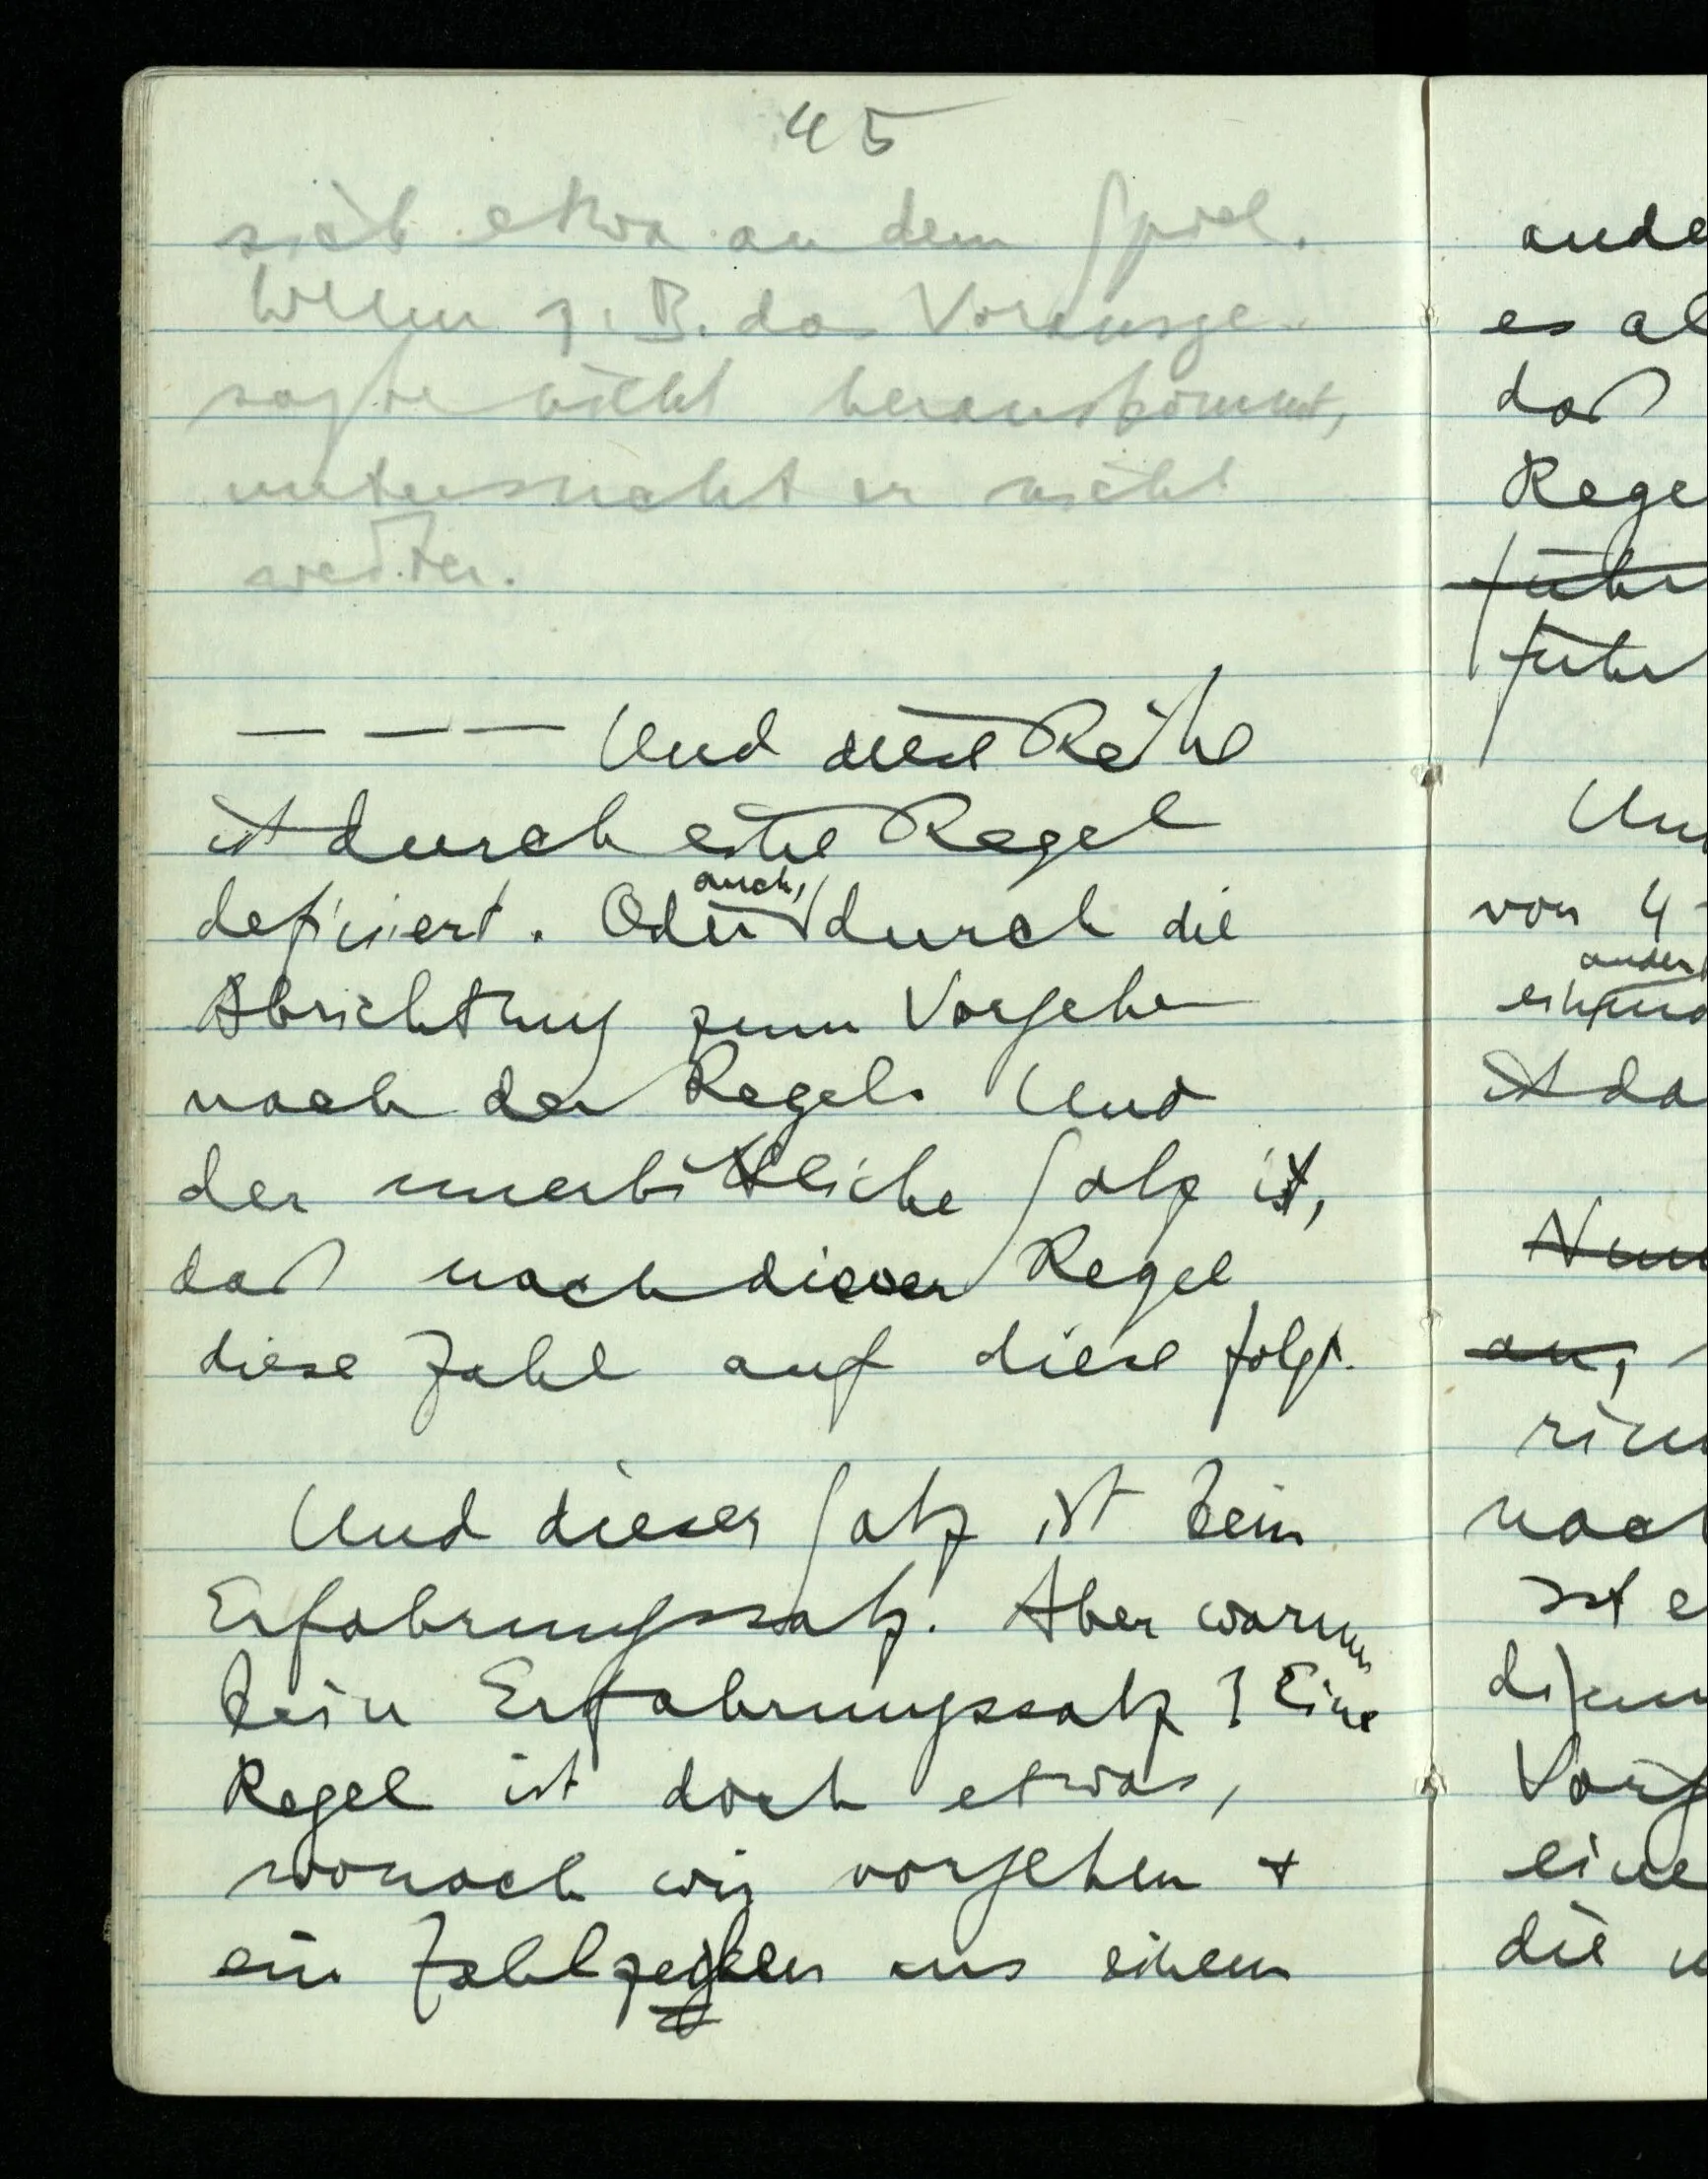 45
sich etwa an dem Spiel.
Wenn z.B. das Vorausge-
sagte nicht herauskommt,
untersucht er nicht
weiter.
— — — Und diese Reihe
ist durch eine Regel
definiert. Oder auch, durch die
Abrichtung zum Vorgehen
nach der Regel. Und
der unerbittliche Satz ist,
daß nach dieser Regel
diese Zahl auf diese folgt.
Und dieser Satz ist kein
Erfahrungssatz. Aber warum
kein Erfahrungssatz? Eine
Regel ist doch etwas,
wonach wir vorgehen +
ein Zahlzeichen aus einem
ande
es al
daß
Rege
führ
führ
von 4
ander
ist da
an,
nach
ist e
Vorg
eine
die